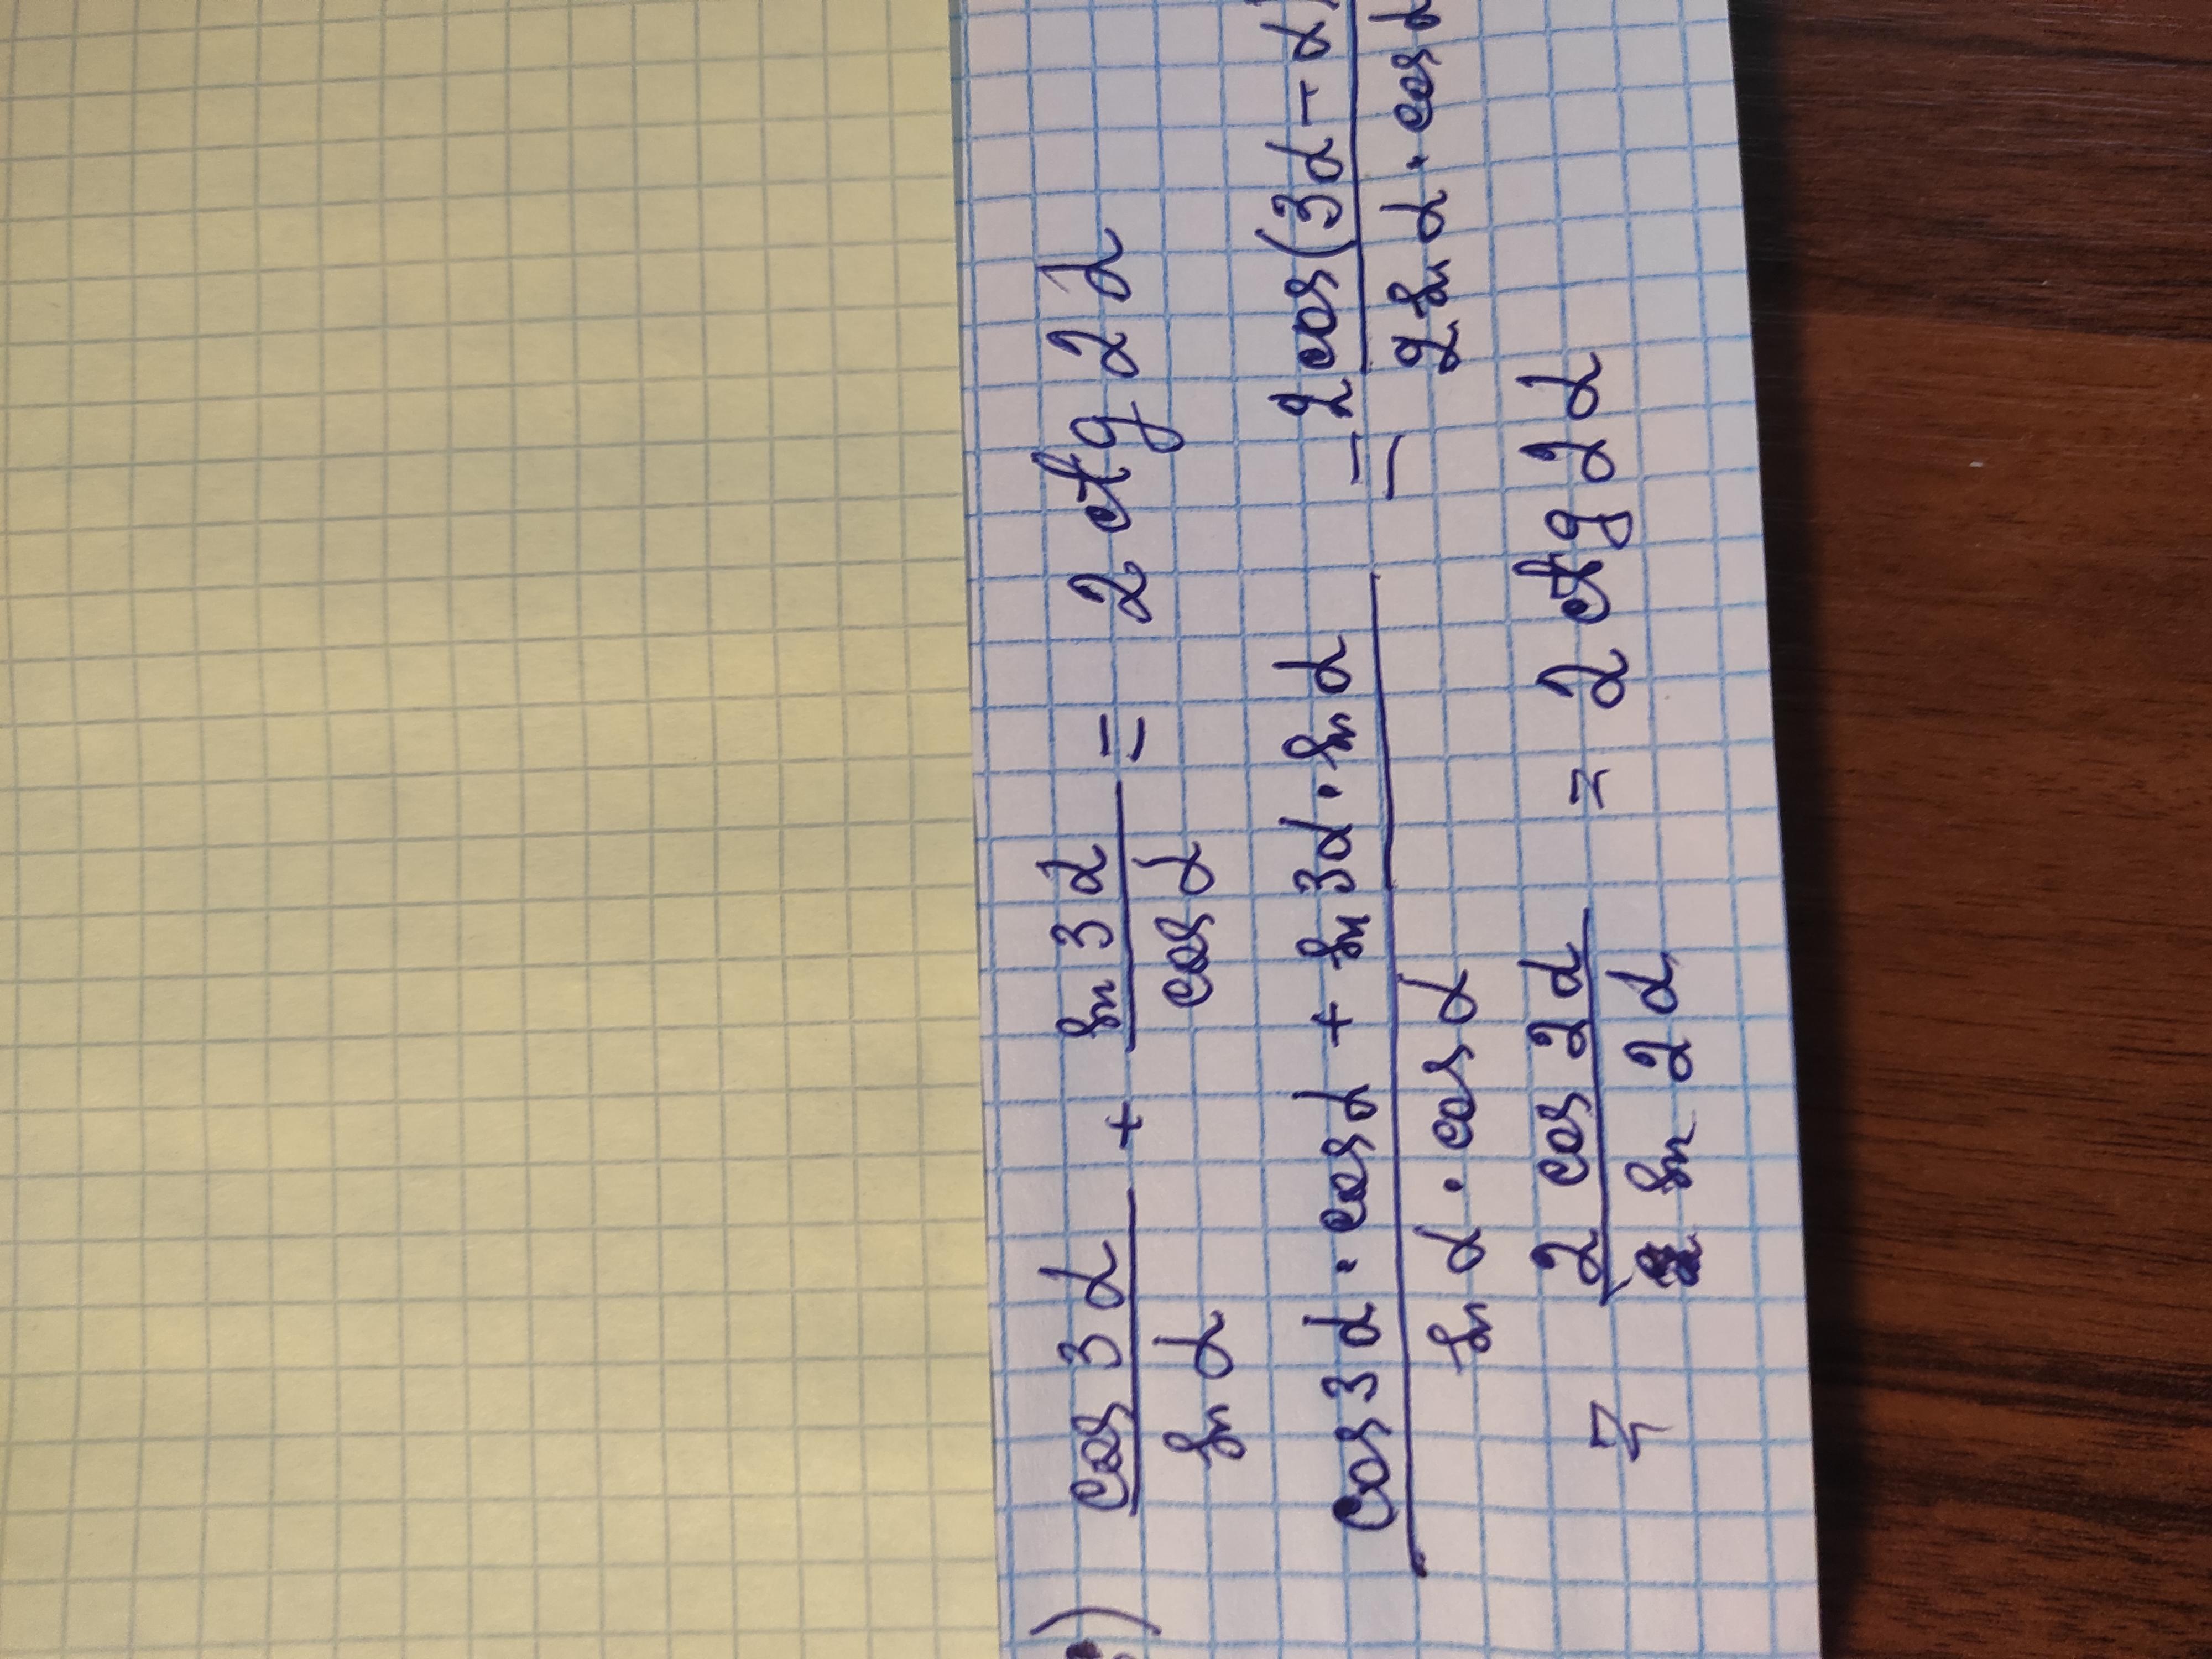 ) cos 3α / sin α + sin 3α / cos α = 2 ctg 2α
cos 3α · cos α + sin 3α · sin α / sin α · cos α = 2 cos(3α − α) / 2 sin α · cos α
= 2 cos 2α / sin 2α = 2 ctg 2α